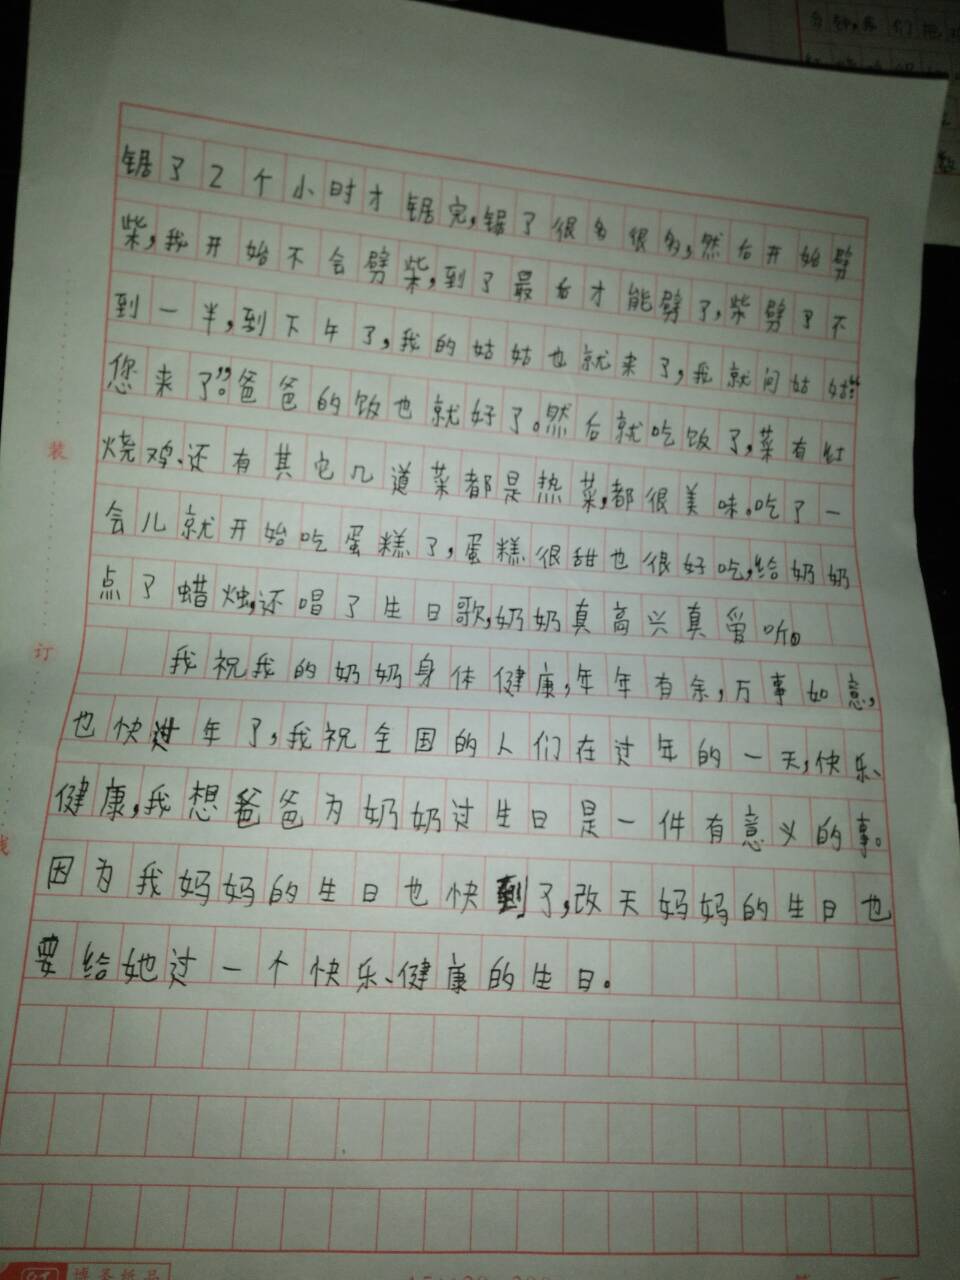 锯了2个小时才锯完,锯了很多很多,然后开始劈
柴,我开始不会劈柴,到了最后才能劈了,柴劈了不
到一半,到下午了,我的姑姑也就来了,我就问姑姑:“
您来了”。爸爸的饭也就好了。然后就吃饭了,菜有红
烧鸡、还有其它几道菜都是热菜,都很美味。吃了一
会儿就开始吃蛋糕了,蛋糕很甜也很好吃,给奶奶
点了蜡烛,还唱了生日歌,奶奶真高兴真爱听。
我祝我的奶奶身体健康,年年有余,万事如意,
也快过年了,我祝全国的人们在过年的一天,快乐、
健康,我想爸爸为奶奶过生日是一件有意义的事。
因为我妈妈的生日也快到了,改天妈妈的生日也
要给她过一个快乐、健康的生日。
装
订
线